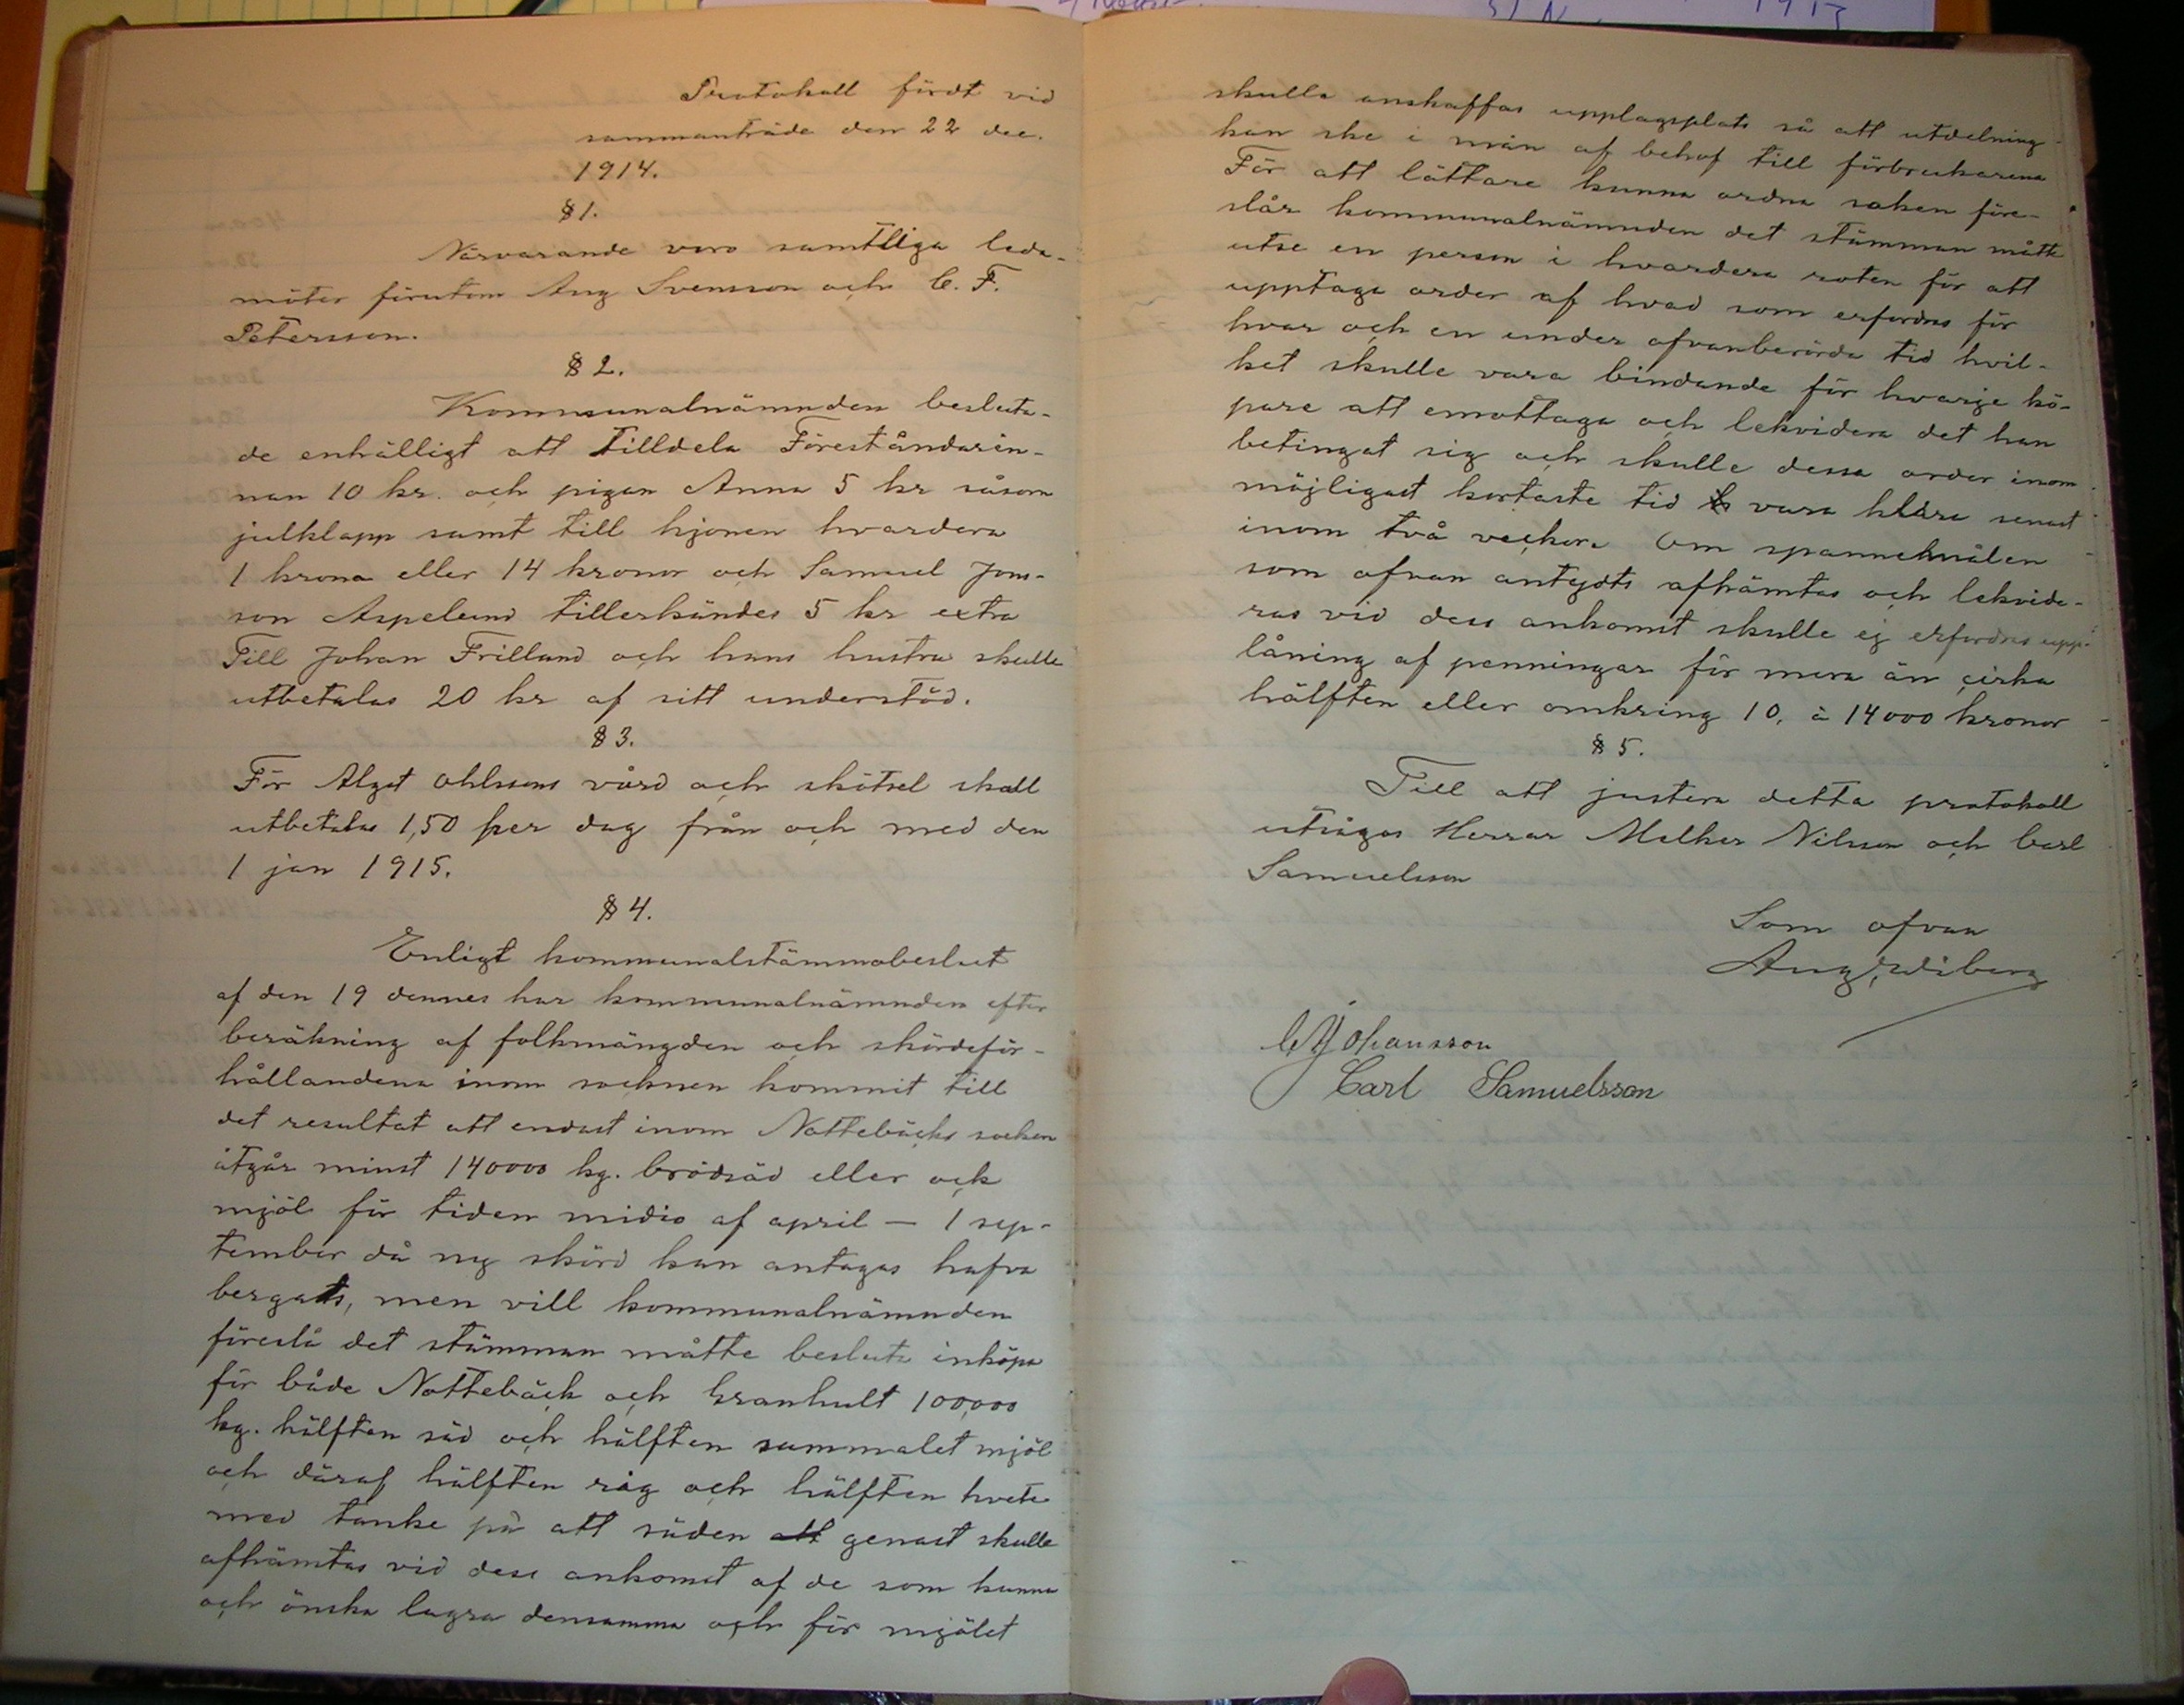 Protokoll fördt vid
sammanträde den 22 dec.
1914.
§ 1.
Närvarande voro samtliga leda-
möter förutom Aug Svensson och C. F.
Petersson.
§ 2.
Kommunalnämnden besluta-
de enhälligt att tilldela Föreståndarin-
nan 10 kr. och pigan Anna 5 kr såsom
julklapp samt till hjonen hvardera
1 krona eller 14 kronor och Samuel Jons-
son Aspelund tillerkändes 5 kr extra
Till Johan Frillund och hans hustru skulle
utbetalas 20 kr af sitt understöd.
§ 3.
För Algot Ohlssons vård och skötsel skall
utbetalas 1,50 per dag från och med den
1 jan 1915.
§ 4.
Enligt kommunalstämmobeslut
af den 19 dennes har kommunalnämnden efter
beräkning af folkmängden och skördeför-
hållandena inom socknen kommit till
det resultat att endast inom Nottebäcks socken
åtgår minst 140000 kg. brödsäd eller ock
mjöl för tiden midio af april — 1 sep-
tember då ny skörd kan antagas hafva
bergats, men vill kommunalnämnden
föreslå det stämman måtte besluta inköpa
för både Nottebäck och Granhult 100,000
kg. hälften säd och hälften sammalet mjöl
och däraf hälften råg och hälften hvete
med tanke på att säden att genast skulle
afhämtas vid dess ankomst af de som kunna
och önska lagra densamma och för mjölet
skulle anskaffas upplagsplats så att utdelning
kan ske i mån af behof till förbrukarena
För att lättare kunna ordna saken före-
slår kommunalnämnden det stämman måtte
utse en person i hvardera roten för att
upptaga order af hvad som erfordras för
hvar och en under ofvanberörda tid hvil-
ket skulle vara bindande för hvarje kö-
pare att emottaga och lekvidera det han
betingat sig och skulle dessa order inom
möjligast kortaste tid vara klara senast
inom två veckor. Om spannemålen
som ofvan antydts afhämtas och lekvide-
ras vid dess ankomst skulle ej erfordras upp-
låning af penningar för mera än cirka
hälften eller omkring 10, à 14000 kronor
§ 5.
Till att justera detta protokoll
utsågos Herrar Melker Nilsson och Carl
Samuelsson
Som ofvan
Aug. Wiberg
C J Johansson
Carl Samuelsson